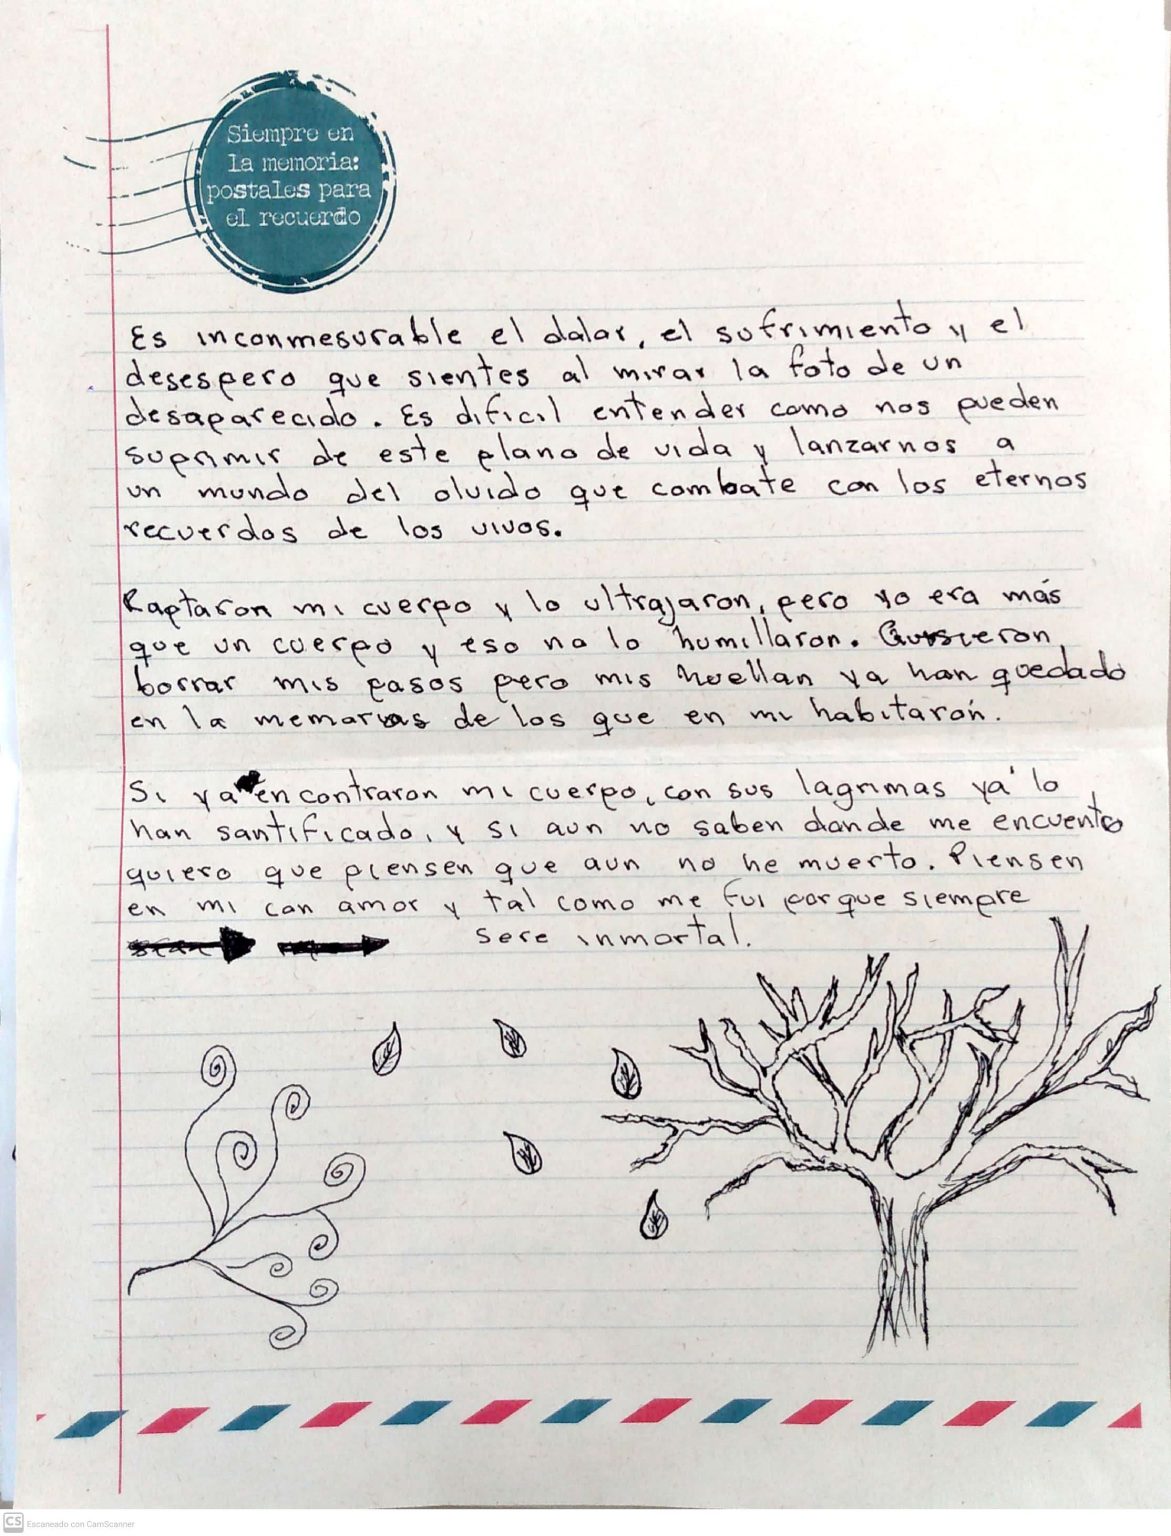 Siempre en
la memoria:
postales para
el recuerdo
Es inconmesurable el dolor, el sufrimiento y el
desespero que sientes al mirar la foto de un
desaparecido. Es dificil entender como nos pueden
suprimir de este plano de vida y lanzarnos a
un mundo del olvido que combate con los eternos
recuerdos de los vivos.
Raptaron mi cuerpo y lo ultrajaron, pero yo era más
que un cuerpo y eso no lo humillaron. Quisieron
borrar mis pasos pero mis huellan ya han quedado
en la memorias de los que en mi habitarón.
Si ya encontraron mi cuerpo, con sus lagrimas ya lo
han santificado, y si aun no saben donde me encuento
quiero que piensen que aun no he muerto. Piensen
en mi con amor y tal como me fui porque siempre
sere inmortal.
CS Escaneado con CamScanner